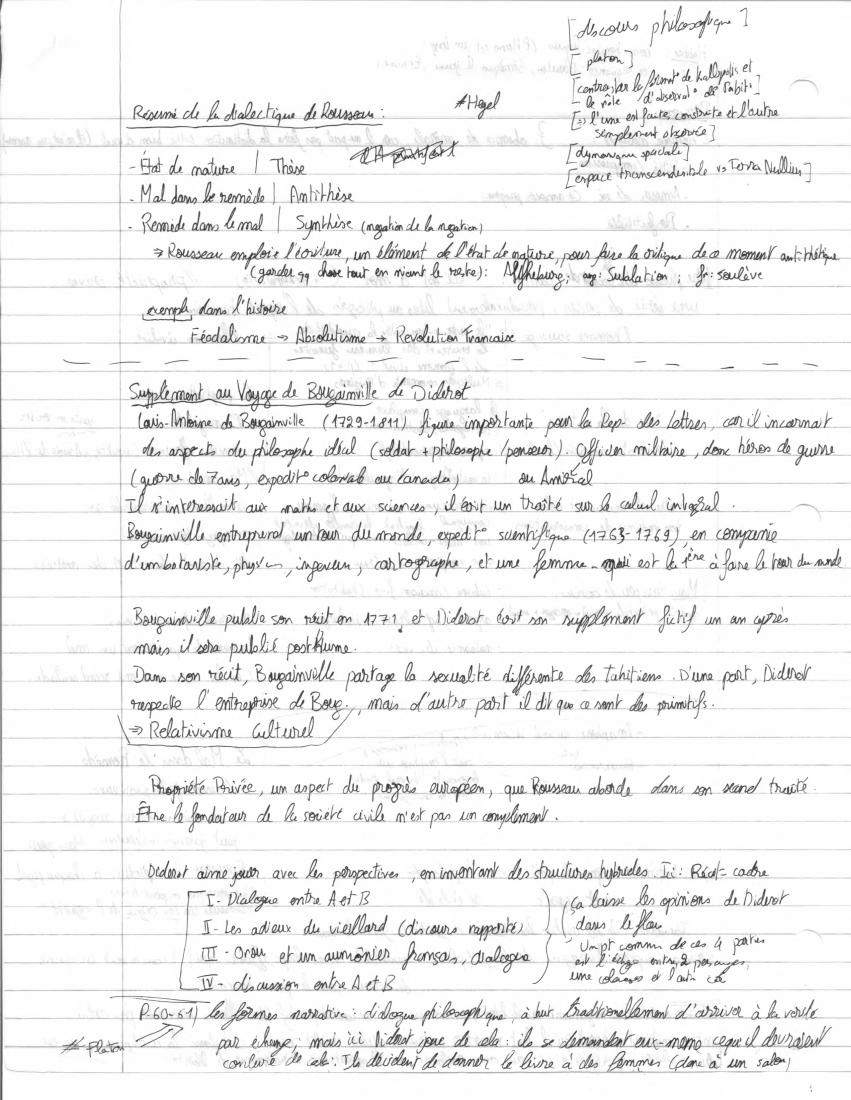 [discours philosophique]
[platon]
[contraster la format° de kallipolis et
le rôle d'observat° de Tahiti]
[⇒ l'une est faite, construite et l'autre
simplement observée]
[dynamique spaciale]
[espace transcendible vs Terra Nullius]
Résumé de la dialectique de Rousseau : #Hegel
- État de nature | Thèse
- Mal dans le remède | Antithèse
- Remède dans le mal | Synthèse (negation de la negation)
⇒ Rousseau emploie l'écriture, un élément de l'état de nature, pour faire la critique de ce moment antithétique
(garder qq chose tout en niant le reste) : Affhebung; ang: Sublation ; fr: soulève
exemple dans l'histoire
Féodalisme → Absolutisme → Revolution Francaise
Supplement au Voyage de Bougainville de Diderot
Louis-Antoine de Bougainville (1729-1811) figure importante pour la Rep. des Lettres, car il incarnait
des aspects du philosophe idéal (soldat + philosophe/penseur). Officier militaire, donc héros de guerre
(guerre de 7 ans, expedit° coloniale au Canada) ou Amiral
Il s'interessait aux maths et aux sciences, il écrit un traité sur le calcul integral.
Bougainville entreprend un tour du monde, expedit° scientifique (1763-1769) en compagnie
d'un botaniste, physicien, ingenieur, cartographe, et une femme - qui est la 1ère à faire le tour du monde
Bougainville publie son récit en 1771, et Diderot écrit son supplement fictif un an après
mais il sera publié posthume.
Dans son récit, Bougainville partage la sexualité différente des tahitiens. D'une part, Diderot
respecte l'entreprise de Boug., mais d'autre part il dit que ce sont des primitifs.
⇒ Relativisme Culturel
Propriété Privée, un aspect du progrès européen, que Rousseau aborde dans son second traité.
Être le fondateur de la société civile n'est pas un compliment.
Diderot aime jouer avec les perspectives, en inventant des structures hybrides. Ici : Récit-cadre
I - Dialogue entre A et B
II - Les adieux du vieillard (discours rapporté)
III - Orou et un aumônier français, dialogue
IV - discussion entre A et B
ça laisse les opinions de Diderot
dans le flou
Un pt commun de ces 4 parties
est l'échge entre 2 persges,
une et l'autre
P.60-61) les formes narrative : dialogue philosophique, à but traditionellement d'arriver à la verité
#Platon par échange, mais ici Diderot joue de cela : ils se demandent eux-meme ce qu'il devraient
conlure de cela. Ils décident de donner le livre à des femmes (donc à un salon)